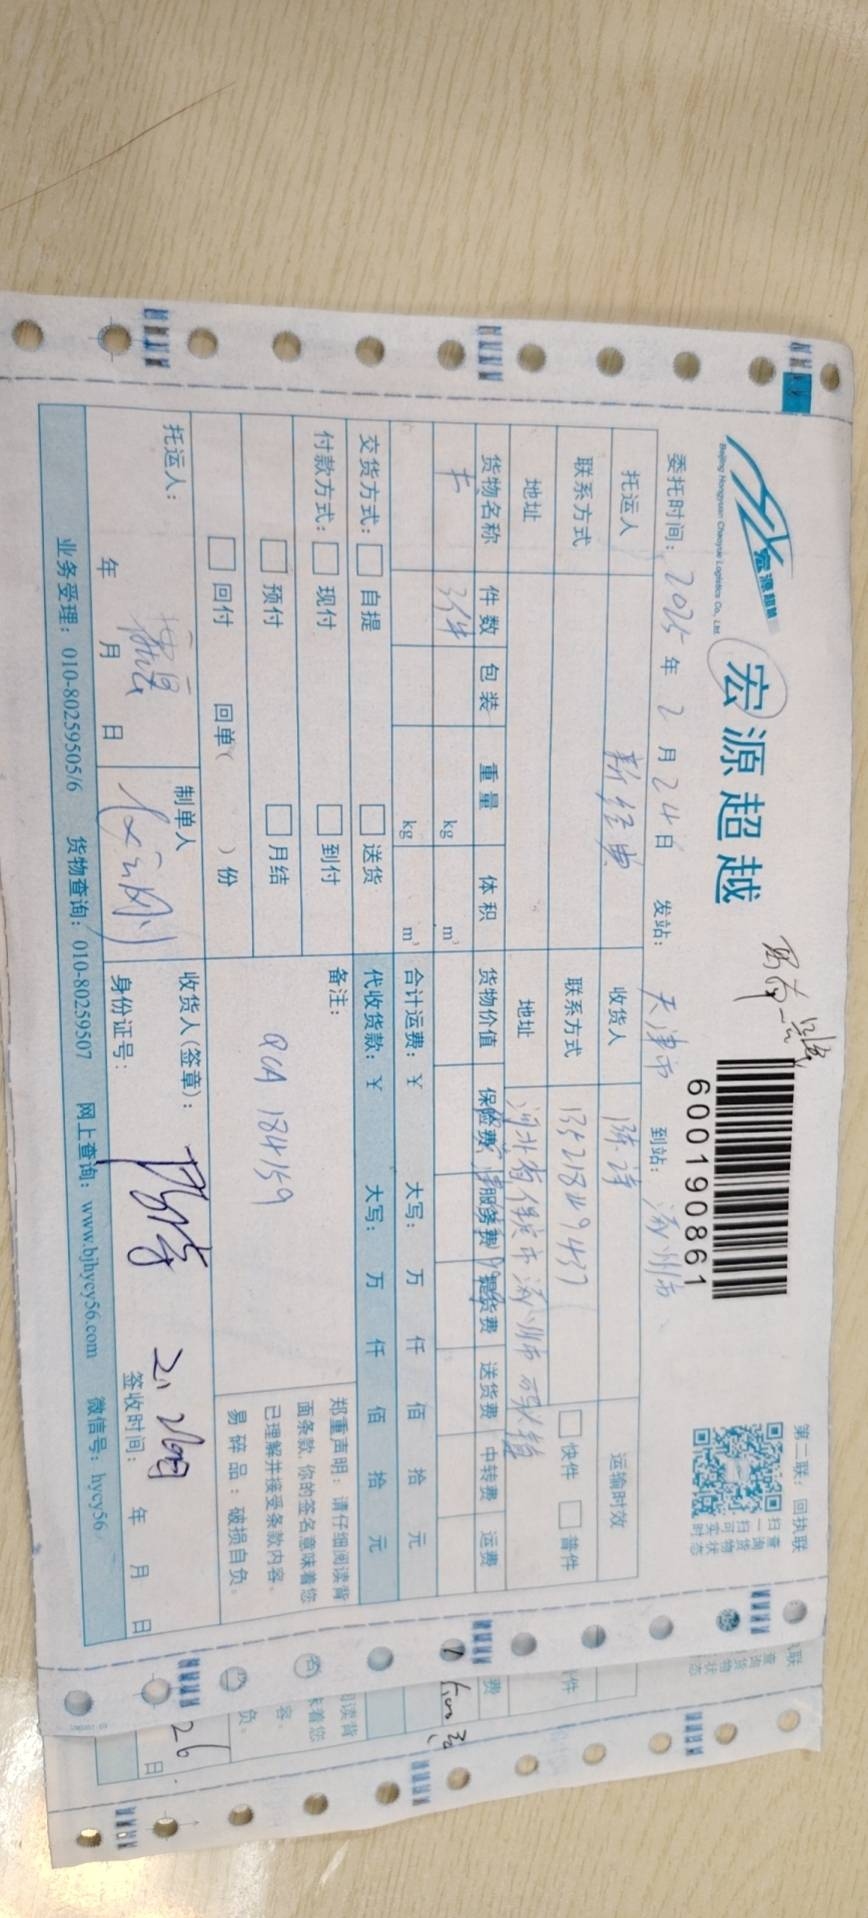 第二联：回执联
宏源超越
Beijing Hongyuan Chaoyue Logistics Co., Ltd.
宏源超越
6000190861
扫一扫可实时
查询货物状态
委托时间：2025年2月24日 发站：天津市 到站：涿州市
托运人 新经典 收货人 陈谆 运输时效
联系方式 联系方式 快件 普件
地址 地址 河北省保定市涿州市码头镇
货物名称 件数 包装 重量 体积 货物价值 保险费 服务费 提货费 送货费 中转费 运费
卡 3件 kg m³
kg m³ 合计运费：¥ 大写： 万 仟 佰 拾 元
交货方式： 自提 送货 代收货款：¥ 大写： 万 仟 佰 拾 元
付款方式： 现付 到付 备注：
预付 月结 QCA 184159
回付 回单( )份
郑重声明：请仔细阅读背
面条款，你的签名意味着您
已理解并接受条款内容。
易碎品：破损自负。
托运人： 制单人 收货人(签章)：
年 月 日 身份证号： 签收时间： 年 月 日
业务受理：010-80259505/6 货物查询：010-80259507 网上查询：www.bjhycy56.com 微信号：hycy56
26
日